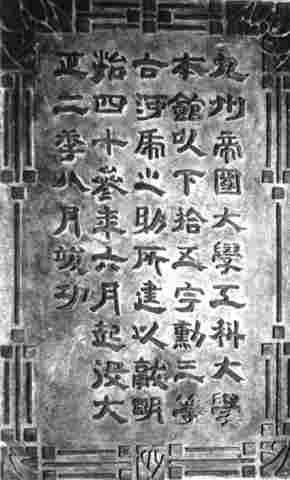 九州帝國大學工科大學
本館以下拾五宇勳三等
古河虎之助所建以獻明
治四十參年六月起役大
正二秊八月竣功